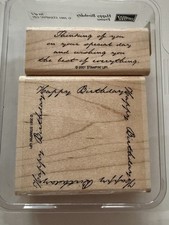 Thinking of you
on your special day
and wishing you
the best of everything.
© 2001 STAMPIN' UP!
Happy Birthday
Happy Birthday
Happy Birthday
Happy Birthday